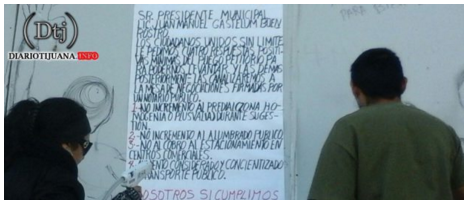 (Dtj)
DIARIOTIJUANA.INFO
SR. PRESIDENTE MUNICIPAL
JUAN MANUEL GASTELUM BUEN
ROSTRO
LOS CIUDADANOS UNIDOS SIN LIMITE
LE PEDIMOS CUATRO RESPUESTAS POSITI
VAS MINIMAS DEL PLIEGO PETITORIO PA
POSTERIORMENTE LAS CANALIZAREMOS A
LA MESA DE NEGOCIACIONES FIRMADAS POR
UN NOTARIO PUBLICO.
1- NO INCREMENTO AL PREDIAL (ZONA HO-
MOGENIA O PLUSVALIA) DURANTE SU GES-
TION.
2- NO INCREMENTO AL ALUMBRADO PUBLICO
3- NO AL COBRO AL ESTACIONAMIENTO EN
CENTROS COMERCIALES.
CONSIDERADO Y CONCIENTIZADO
TRANSPORTE PUBLICO.
NOSOTROS SI CUMPLIMOS